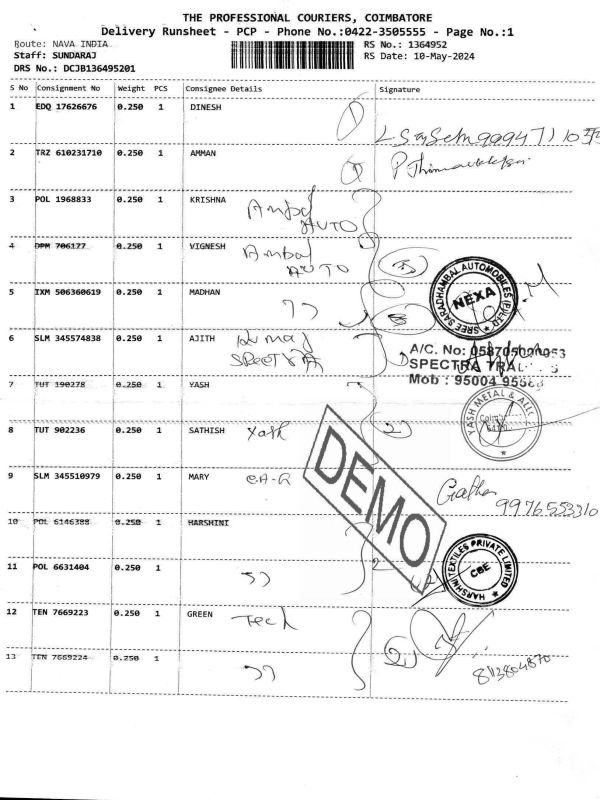 THE PROFESSIONAL COURIERS, COIMBATORE
Delivery Runsheet - PCP - Phone No.:0422-3505555 - Page No.:1
Route: NAVA INDIA
RS No.: 1364952
Staff: SUNDARAJ
RS Date: 10-May-2024
DRS No.: DCJB136495201
S No Consignment No Weight PCS Consignee Details Signature
1 EDQ 17626676 0.250 1 DINESH
99947110
2 TRZ 610231710 0.250 1 AMMAN
3 POL 1968833 0.250 1 KRISHNA Ambal AUTO
4 DPM 706127 0.250 1 VIGNESH Ambal AUTO
5 IXM 506360619 0.250 1 MADHAN
SREE SARADHAMBAL AUTOMOBILES (P) LTD.
NEXA
6 SLM 345574838 0.250 1 AJITH Kumar SPECTRA
A/C. No: 058705000053
SPECTRA
Mob : 95004
7 TUT 190278 0.250 1 YASH
YASH METAL & ALLOY
8 TUT 902236 0.250 1 SATHISH Yash
9 SLM 345510979 0.250 1 MARY
DEMO
9976553310
10 POL 6146388 0.250 1 HARSHINI
HARSHNI TEXTILES PRIVATE LIMITED
CBE
11 POL 6631404 0.250 1
12 TEN 7669223 0.250 1 GREEN Tech
13 TEN 7669224 0.250 1
8113804870